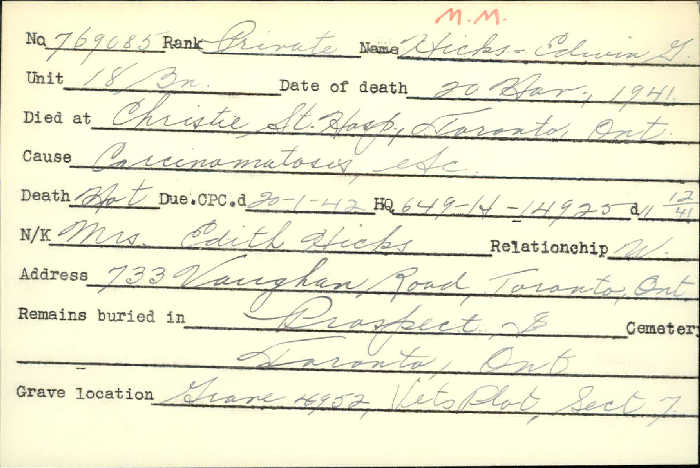 M.M.
No 769085 Rank Private Name Hicks - Edwin G.
Unit 18/Bn. Date of death 20 Nov., 1941.
Died at Christie St. Hosp., Toronto, Ont.
Cause Carcinomatosis, etc.
Death Not Due.CPC.d 20-1-42 HQ 649-H-14925 d 11 12/41
N/K Mrs. Edith Hicks Relationship W.
Address 733 Vaughan Road, Toronto, Ont
Remains buried in Prospect Cemeter
Toronto, Ont
Grave location Grave 4952, Vets Plot, Sect 7.